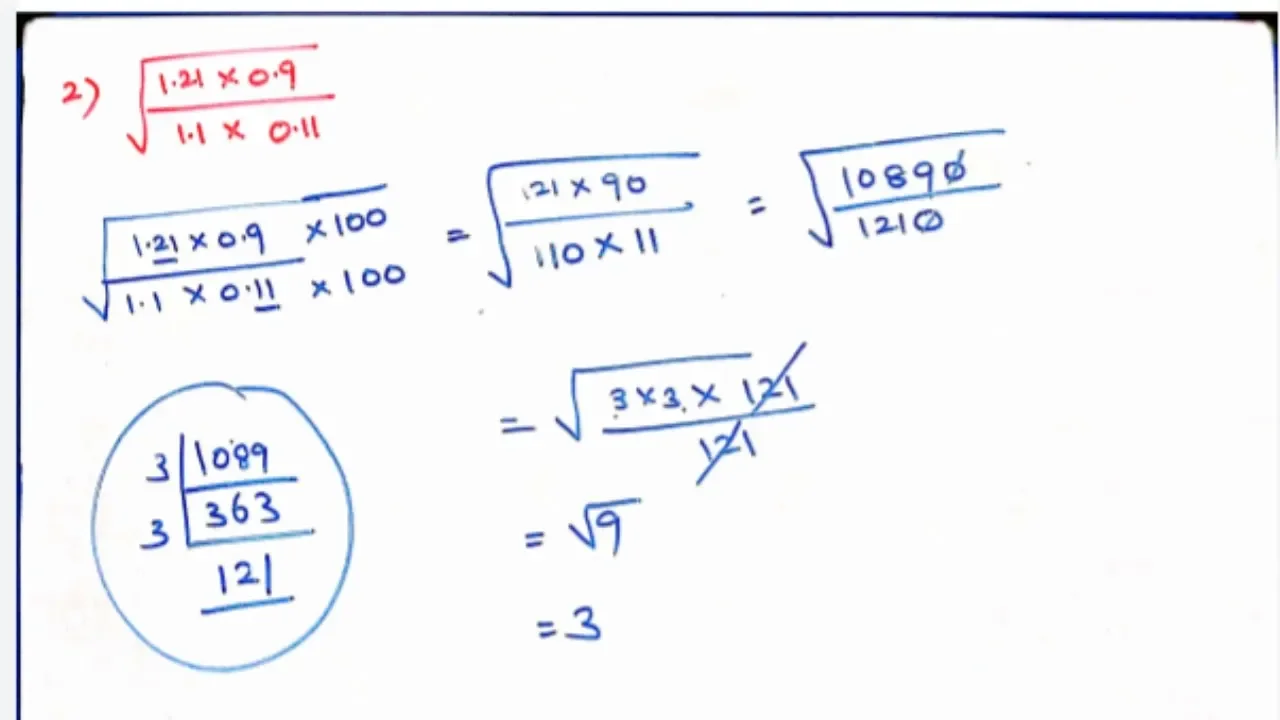 2) √(1.21 × 0.9 / 1.1 × 0.11)
√(1.21 × 0.9 × 100 / 1.1 × 0.11 × 100) = √(121 × 90 / 110 × 11) = √(10890 / 1210)
= √(3 × 3 × 121 / 121)
3 | 1089
3 | 363
121
= √9
= 3